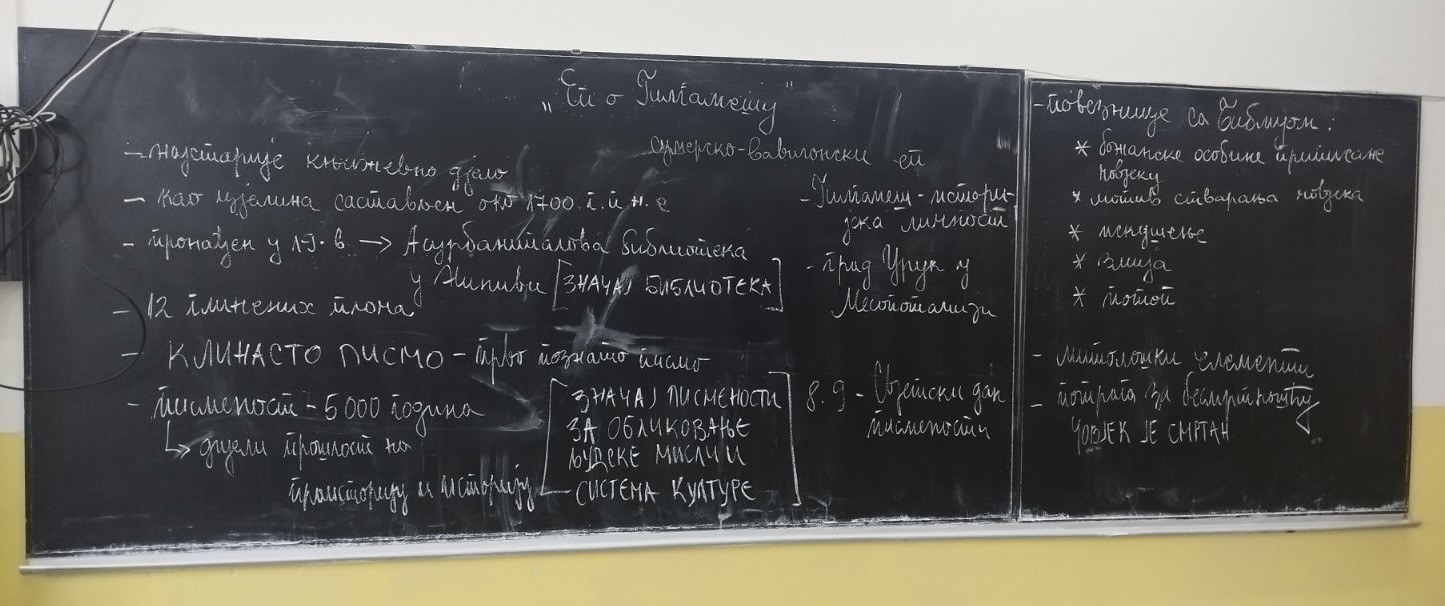 „Еп о Гилгамешу"
сумерско-вавилонски еп
- најстарије књижевно дјело
- као цјелина састављен око 1700. г. п. н. е
- пронађен у 19. в. → Асурбанипалова библиотека
у Ниниви [ЗНАЧАЈ БИБЛИОТЕКА]
- 12 глинених плоча
- КЛИНАСТО ПИСМО - прво познато писмо
- писменост - 5000 година
↳ дијели прошлост на
праисторију и историју
[ЗНАЧАЈ ПИСМЕНОСТИ
ЗА ОБЛИКОВАЊЕ
ЉУДСКЕ МИСЛИ И
СИСТЕМА КУЛТУРЕ]
- Гилгамеш - истори-
јска личност
- град Урук у
Месопотамији
8.9 - Свјетски дан
писмености
- повезнице са Библијом:
* божанске особине приписане
човјеку
* мотив стварања човјека
* искушење
* змија
* потоп
- митолошки елементи
- потрага за бесмртношћу
ЧОВЈЕК ЈЕ СМРТАН